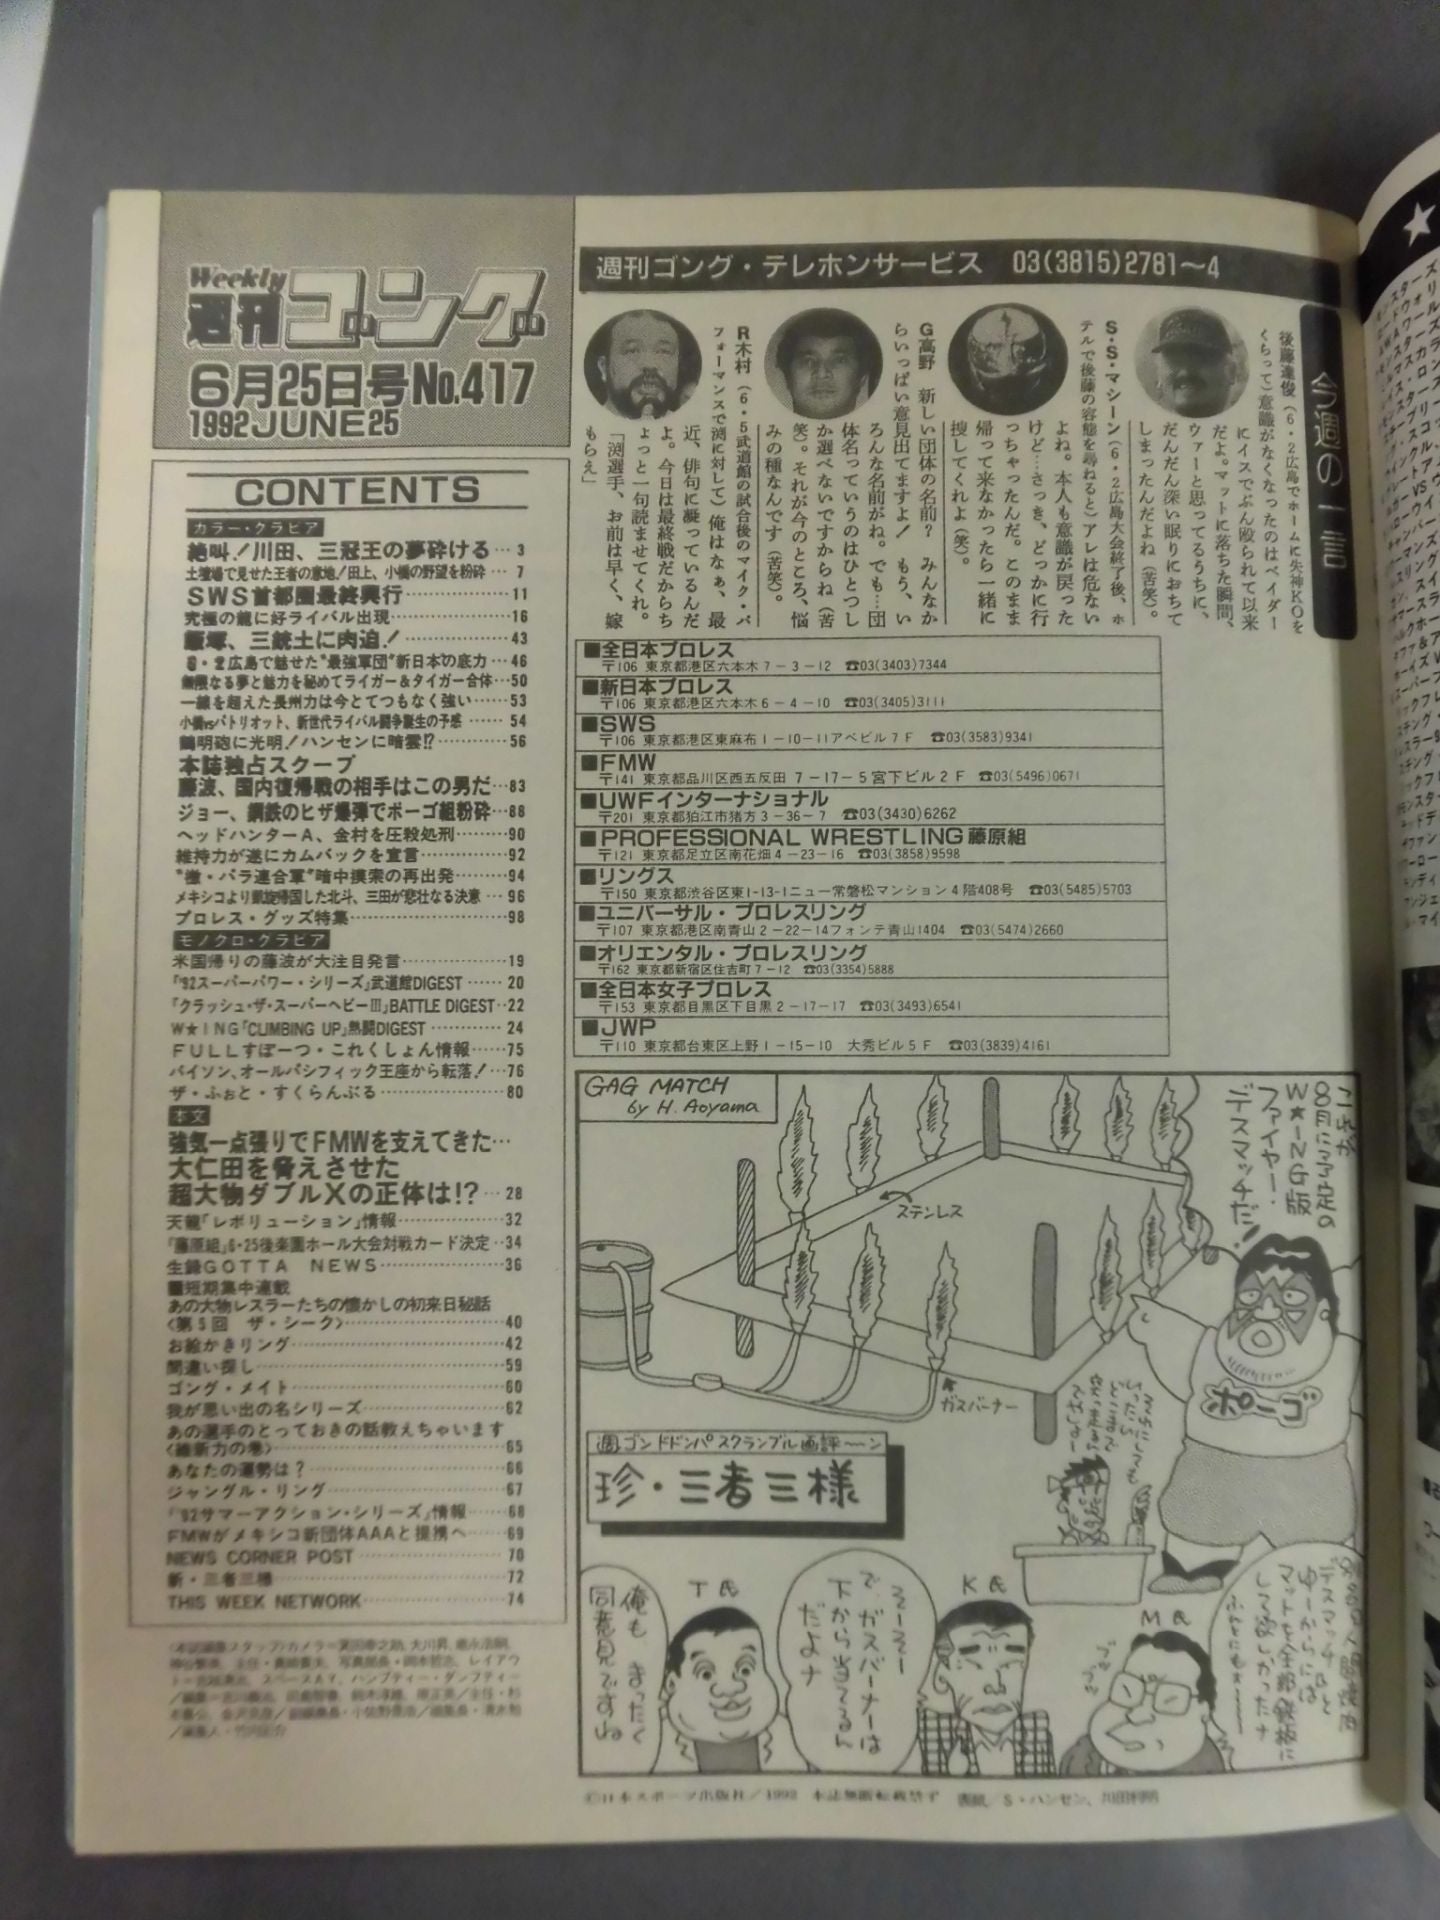 Weekly
週刊ゴング
6月25日号No.417
1992 JUNE 25
CONTENTS
カラー・グラビア
絶叫!川田、三冠王の夢砕ける…3
土壇場で見せた王者の意地!田上、小橋の野望を粉砕…7
SWS首都圏最終興行…11
究極の龍に好ライバル出現…16
飯塚、三銃士に肉迫!…43
6・2広島で魅せた“最強軍団”新日本の底力…46
無限なる夢と魅力を秘めてライガー&タイガー合体…50
一線を超えた長州力は今とてつもなく強い…53
小橋vsパトリオット、新世代ライバル闘争誕生の予感…54
鶴明砲に光明!ハンセンに暗雲!?…56
本誌独占スクープ
藤波、国内復帰戦の相手はこの男だ…83
ジョー、鋼鉄のヒザ爆弾でポーゴ組粉砕…88
ヘッドハンターA、金村を圧殺処刑…90
維持力が遂にカムバックを宣言…92
“檄・パラ連合軍”暗中摸索の再出発…94
メキシコより凱旋帰国した北斗、三田が悲壮なる決意…96
プロレス・グッズ特集…98
モノクロ・グラビア
米国帰りの藤波が大注目発言…19
「'92スーパーパワー・シリーズ」武道館DIGEST…20
『クラッシュ・ザ・スーパーヘビーⅢ』BATTLE DIGEST…22
W★ING「CLIMBING UP」熱闘DIGEST…24
FULLすぽーつ・これくしょん情報…75
バイソン、オールパシフィック王座から転落!…76
ザ・ふぉと・すくらんぶる…80
本文
強気一点張りでFMWを支えてきた…
大仁田を脅えさせた
超大物ダブルXの正体は!?…28
天龍「レボリューション」情報…32
「藤原組」6・25後楽園ホール大会対戦カード決定…34
生録GOTTA NEWS…36
■短期集中連載
あの大物レスラーたちの懐かしの初来日秘話
〈第5回 ザ・シーク〉…40
お絵かきリング…42
間違い探し…59
ゴング・メイト…60
我が思い出の名シリーズ…62
あの選手のとっておきの話教えちゃいます
〈維新力の巻〉…65
あなたの運勢は?…66
ジャングル・リング…67
「'92サマーアクション・シリーズ」情報…68
FMWがメキシコ新団体AAAと提携へ…69
NEWS CORNER POST…70
新・三者三様…72
THIS WEEK NETWORK…74
週刊ゴング・テレホンサービス 03(3815)2781〜4
今週の一言
後藤達俊(6・2広島でホームに失神KOを
くらって)意識がなくなったのはベイダー
にイスでぶん殴られて以来
だよ。マットに落ちた瞬間、
ウァーと思ってるうちに、
だんだん深い眠りにおちて
しまったんだよね(苦笑)。
S・S・マシーン(6・2広島大会終了後、ホ
テルで後藤の容態を尋ねると)アレは危ない
よね。本人も意識が戻った
けど…さっき、どっかに行
っちゃったんだ。このまま
帰って来なかったら一緒に
捜してくれよ(笑)。
G高野 新しい団体の名前? みんなか
らいっぱい意見出てますよ! もう、い
ろんな名前がね。でも…団
体名っていうのはひとつし
か選べないですからね(苦
笑)。それが今のところ、悩
みの種なんです(苦笑)。
R木村(6・5武道館の試合後のマイク・パ
フォーマンスで渕に対して)俺はなぁ、最
近、俳句に凝っているんだ
よ。今日は最終戦だからち
ょっと一句読ませてくれ。
「渕選手、お前は早く、嫁
もらえ」
■全日本プロレス
〒106 東京都港区六本木7-3-12 ☎03(3403)7344
■新日本プロレス
〒106 東京都港区六本木6-4-10 ☎03(3405)3111
■SWS
〒106 東京都港区東麻布1-10-11アベビル7F ☎03(3583)9341
■FMW
〒141 東京都品川区西五反田7-17-5宮下ビル2F ☎03(5496)0671
■UWFインターナショナル
〒201 東京都狛江市猪方3-36-7 ☎03(3430)6262
■PROFESSIONAL WRESTLING藤原組
〒121 東京都足立区南花畑4-23-16 ☎03(3858)9598
■リングス
〒150 東京都渋谷区東1-13-1ニュー常磐松マンション4階408号 ☎03(5485)5703
■ユニバーサル・プロレスリング
〒107 東京都港区南青山2-22-14フォンテ青山1404 ☎03(5474)2660
■オリエンタル・プロレスリング
〒162 東京都新宿区住吉町7-12 ☎03(3354)5888
■全日本女子プロレス
〒153 東京都目黒区下目黒2-17-17 ☎03(3493)6541
■JWP
〒110 東京都台東区上野1-15-10 大秀ビル5F ☎03(3839)4161
GAG MATCH
by H.Aoyama
これが
8月に予定の
W★ING版
ファイヤー・
デスマッチだ!
ステンレス
ガスバーナー
ポーゴ
週ゴンドドンパスクランブル画評〜ン
珍・三者三様
M氏
K氏
そーそー
で、ガスバーナーは
下から当てるん
だよナ
T氏
俺も まったく
同意見ですね
©日本スポーツ出版社/1992 本誌無断転載禁ず 表紙/S・ハンセン、川田利明